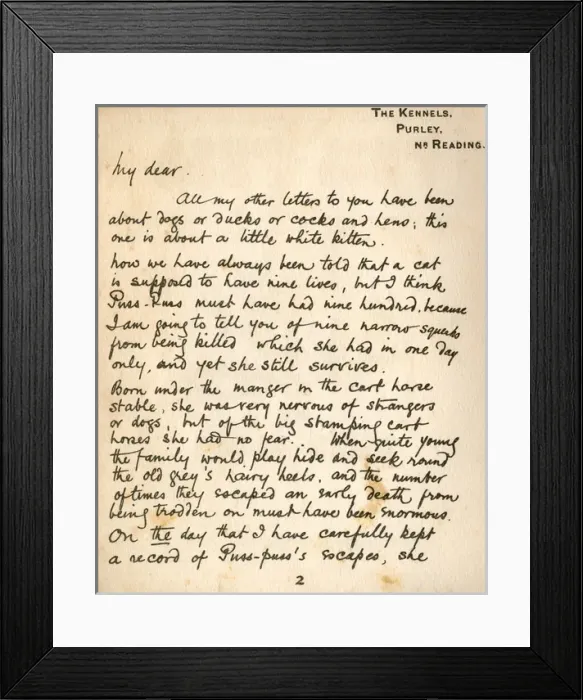 THE KENNELS,
PURLEY,
NR READING.
My dear.
All my other letters to you have been
about dogs or ducks or cocks and hens; this
one is about a little white kitten.
now we have always been told that a cat
is supposed to have nine lives, but I think
Puss-Puss must have had nine hundred, because
I am going to tell you of nine narrow squeaks
from being killed which she had in one day
only, and yet she still survives.
Born under the manger in the cart horse
stable, she was very nervous of strangers
or dogs, but of the big stamping cart
horses she had no fear. When quite young
the family would play hide and seek round
the old grey's hairy heels, and the number
of times they escaped an early death from
being trodden on must have been enormous.
On the day that I have carefully kept
a record of Puss-puss's escapes, she
2